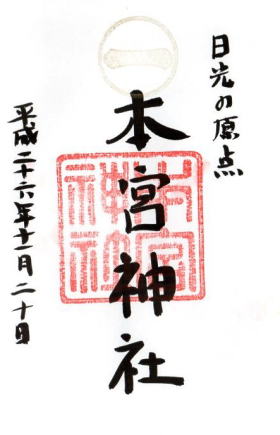 日光の原点
一
本宮神社
本宮神社
平成二十六年十一月二十日